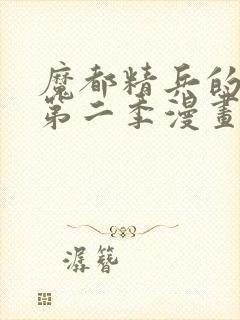 魔都精兵的
第二季漫畫
潺簪